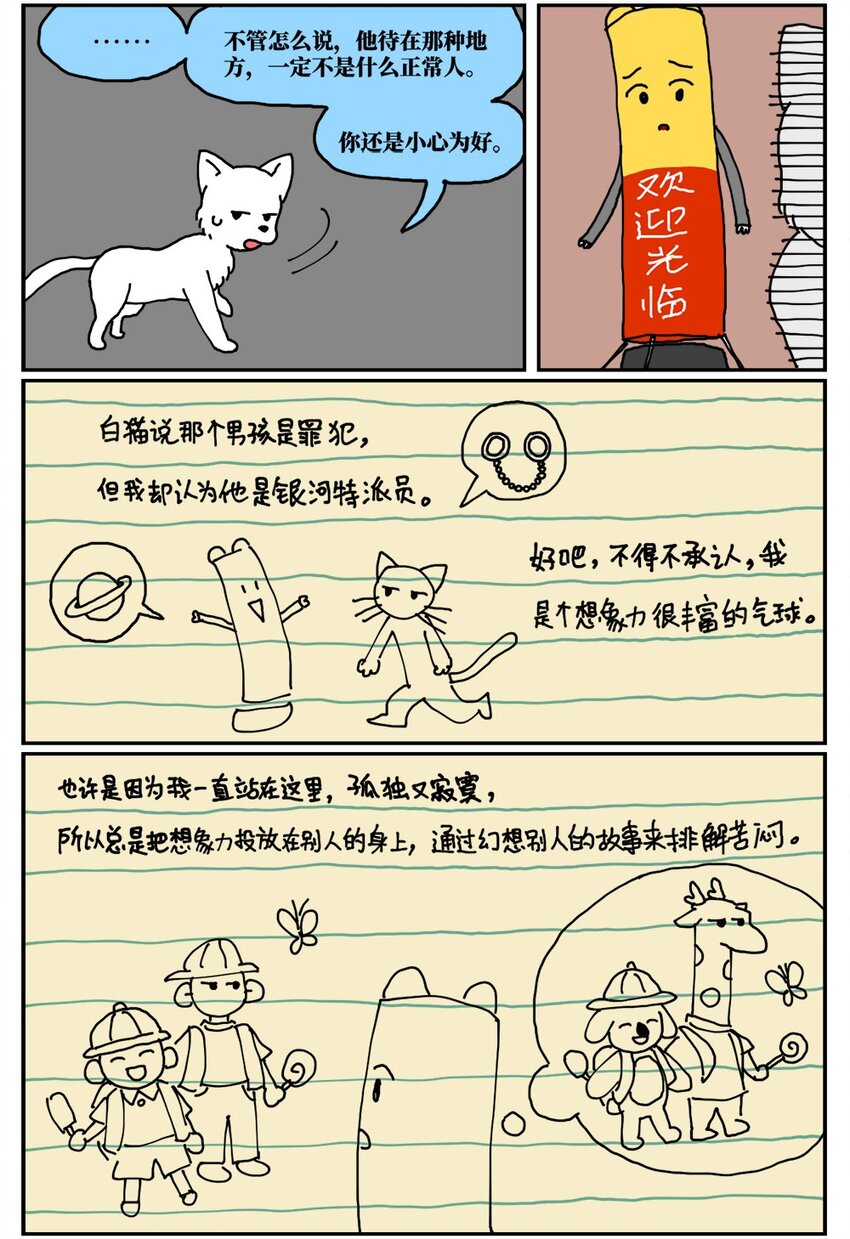 ……
不管怎么说，他待在那种地
方，一定不是什么正常人。
你还是小心为好。
欢
迎
光
临
白猫说那个男孩是罪犯，
但我却认为他是银河特派员。
好吧，不得不承认，我
是个想象力很丰富的气球。
也许是因为我一直站在这里，孤独又寂寞，
所以总是把想象力投放在别人的身上，通过幻想别人的故事来排解苦闷。